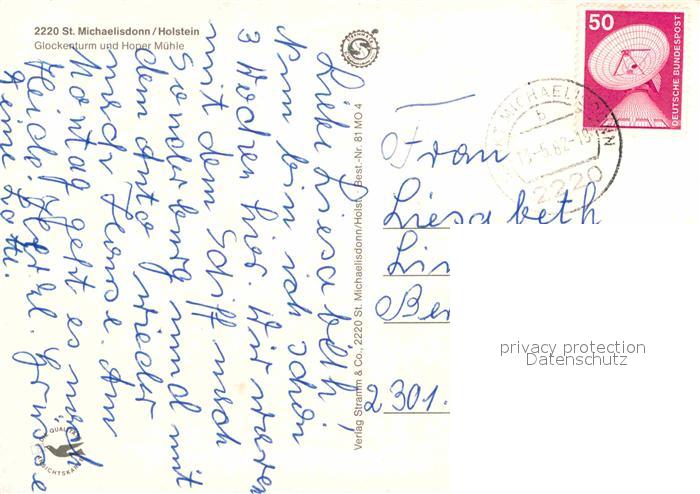 2220 St. Michaelisdonn/Holstein
Glockenturm und Hoper Mühle
Liebe Liesabeth!
Nun bin ich schon
3 Wochen hier. Wir waren
mit dem Schiff nach
Sonderburg und mit
dem Auto wieder
nach Hause. Am
Montag geht es nach
Heide. Herzl. Grüsse
Deine Lotti.
Verlag Stramm & Co., 2220 St. Michaelisdonn/Holst. · Best.-Nr. 81 MO 4
QUALITÄTS
ANSICHTSKARTE
50
DEUTSCHE BUNDESPOST
ST MICHAELISDONN
b
-5.82-18
2220
Frau
Liesabeth
Lin
Ber
2301.
privacy protection
Datenschutz